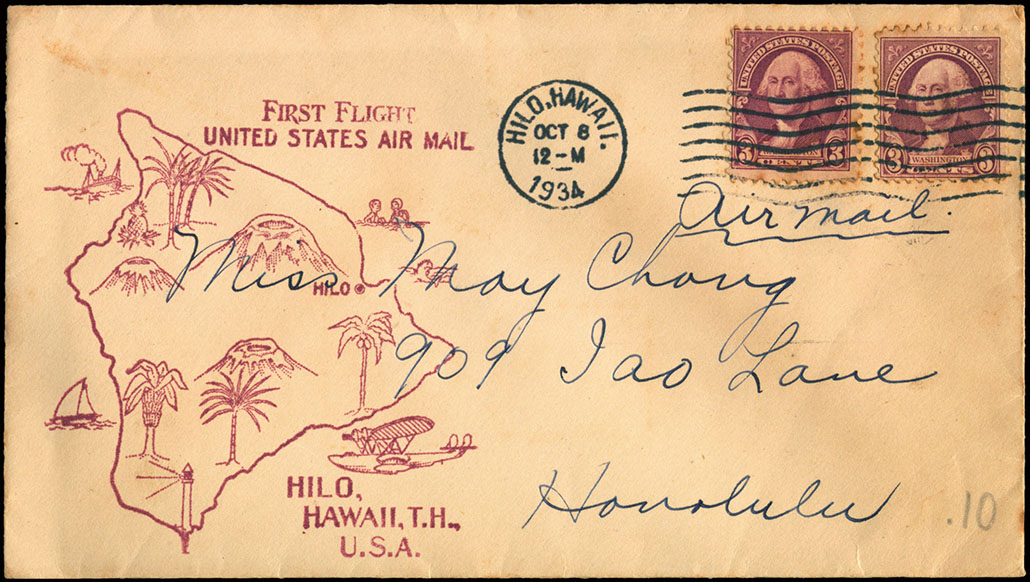 FIRST FLIGHT
UNITED STATES AIR MAIL
HILO, HAWAII.
OCT 8
12-M
1934
UNITED STATES POSTAGE
3 3
UNITED STATES POSTAGE
WASHINGTON
3 3
Air mail.
Miss May Chong
HILO
909 Iao Lane
Honolulu
.10
HILO,
HAWAII, T.H.,
U.S.A.